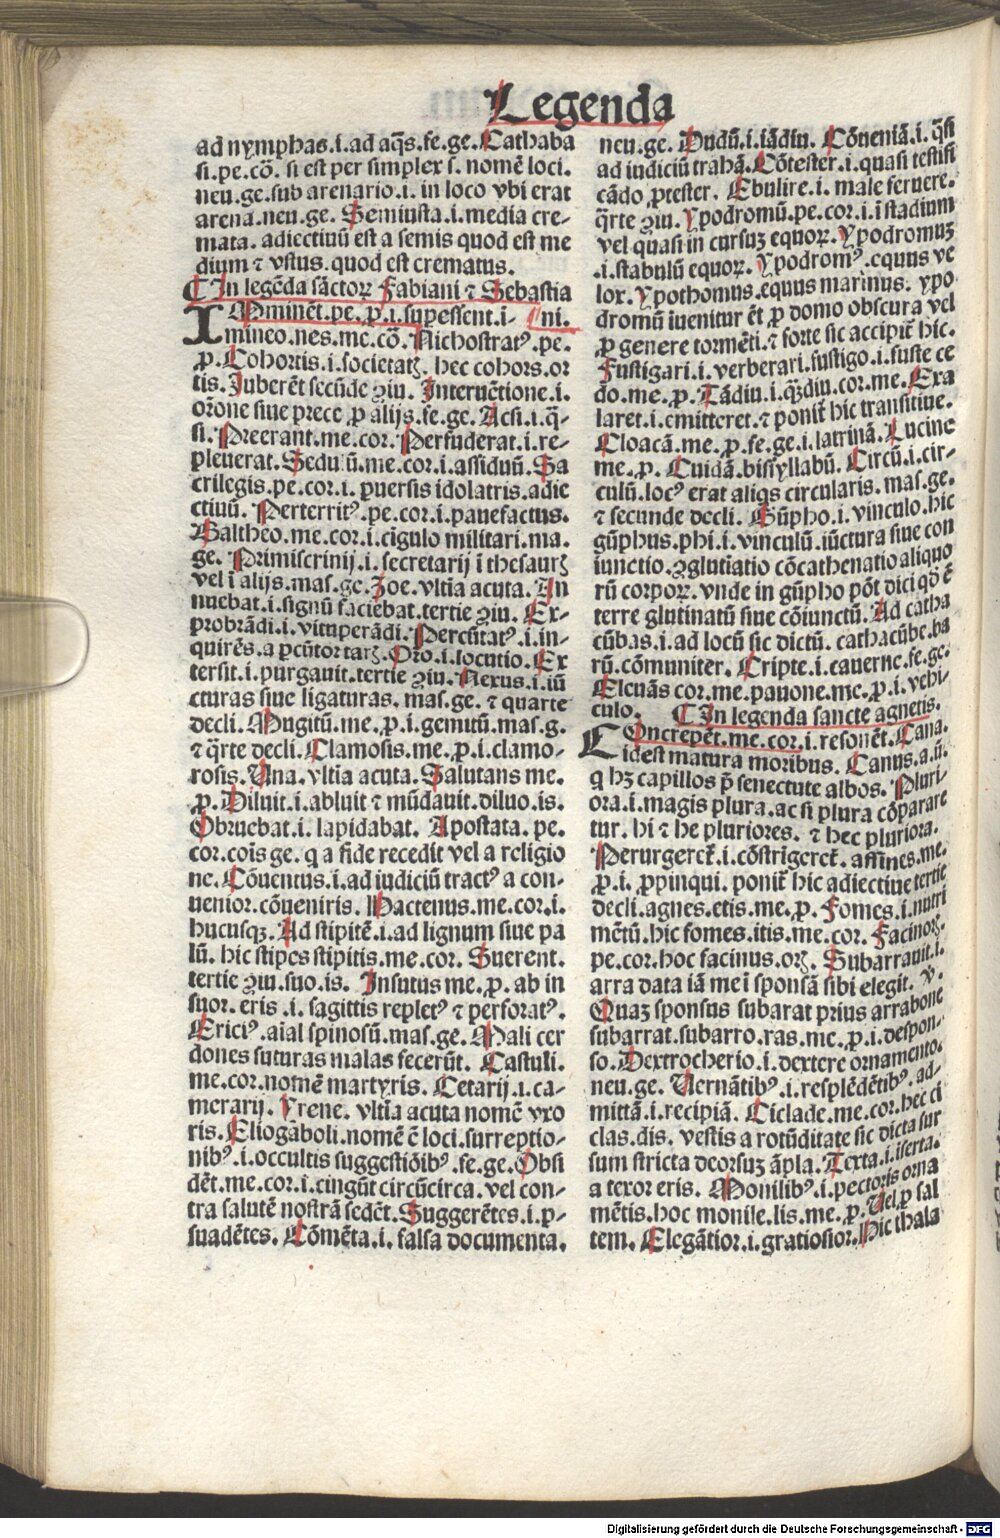 Legenda
ad nymphas.i.ad aq̃s.fe.ge. Cathaba
si.pe.cõ. si est per simplex s. nomẽ loci.
neu.ge.sub arenario.i. in loco vbi erat
arena.neu.ge. Semiusta.i.media cre-
mata. adiectiuũ est a semis quod est me
dium ⁊ vstus.quod est crematus.
¶ In legẽda sãctoꝝ Fabiani ⁊ Sebastia
IMminẽt.pe.ꝓ.i.supessent.i- ni.
mineo.nes.me.cõ. Nichostratꝰ.pe.
ꝓ. Cohortis.i.societatꝭ. hec cohors.or
tis. Juberẽt secũde ꝯiu. Interuẽtione.i.
orõne siue prece ꝓ alijs.fe.ge. Acsi.i.q̃-
si. Preerant.me.cor. Perfuderat.i.re-
pleuerat. Seduũ.me.cor.i.assiduũ. Sa
crilegis.pe.cor.i. puersis idolatris.adie
ctiuũ. Perterritꝰ.pe.cor.i.pauefactus.
Baltheo.me.cor.i.cĩgulo militari.ma.
ge. Primiscrinij.i.secretarij ĩ thesaurꝭ
vel ĩ alijs.mas.ge. Zoe.vltĩa acuta. In
nuebat.i.signũ faciebat.tertie ꝯiu. Ex-
probrãdi.i.vituperãdi. Percũtatꝰ.i.in-
quirẽs.a pcũtor tarꝭ. Oro.i.locutio. Ex
tersit.i.purgauit.tertie ꝯiu. Nexus.i.iũ
cturas siue ligaturas. mas.ge. ⁊ quarte
decli. Mugitũ.me.ꝓ.i.gemitũ.mas.g.
⁊ q̃rte decli. Clamosis.me.ꝓ.i.clamo-
rosis. Una.vltĩa acuta. Salutans me.
ꝓ. Diluit.i.abluit ⁊ mũdauit.diluo.is.
Obruebat.i.lapidabat. Apostata.pe.
cor.cõis ge. q a fide recedit vel a religio
ne. Cõuentus.i.ad iudiciũ tractꝰ a con-
uenior.cõueniris. Hactenus.me.cor.i.
hucusqꝫ. Ad stipitẽ.i.ad lignum siue pa
lũ. hic stipes stipitis.me.cor. Suerent.
tertie ꝯiu.suo.is. Insutus me.ꝓ. ab in
suor.eris.i.sagittis repletꝰ ⁊ perforatꝰ.
Ericiꝰ.aĩal spinosũ.mas.ge. Mali cer
dones suturas malas fecerũt. Castuli.
me.cor.nomẽ martyris. Cetarij.i.ca-
merarij. Yrene. vltĩa acuta nomẽ vxo
ris. Eliogaboli.nomẽ ẽ loci.surreptio-
nibꝰ.i.occultis suggestiõibꝰ.fe.ge. Obsi
dẽt.me.cor.i.cingũt circũcirca.vel con-
tra salutẽ nostrã sedẽt. Suggerẽtes.i.p-
suadẽtes. Cõmẽta.i. falsa documenta.
neu.ge. Dudũ.i.iãdiu. Cõueniã.i.q̃si
ad iudiciũ trahã. Cõtester.i.quasi testifi
cãdo ꝓtester. Ebulire.i.male feruere.
q̃rte ꝯiu. Ypodromũ.pe.cor.i.ĩ stadium
vel quasi in cursuꝫ equoꝝ. Ypodromuꝫ
.i.stabulũ equoꝝ. Ypodromꝰ.equus ve
lox. Ypothomus.equus marinus. ypo
dromũ iuenitur ẽt ꝓ domo obscura vel
ꝓ genere tormẽti.⁊ forte sic accipit̃ hic.
Fustigari.i.verberari.fustigo.i.fuste ce
do.me.ꝓ. Tãdiu.i.qꝫdiu.cor.me. Exa
laret.i.emitteret.⁊ ponit̃ hic transitiue.
Cloacã.me.ꝓ.fe.ge.i.latrinã. Lucine
me.ꝓ. Cuidã.bissyllabũ. Circũ.i.cir-
culũ.locꝰ erat aliq̃s circularis.mas.ge.
⁊ secunde decli. Gũpho.i.vinculo.hic
gũphus.phi.i.vinculũ.iũctura siue con
iunctio.ꝯglutĩatio cõcathenatio aliquo
rũ corpoꝝ. vnde in gũpho põt dici qđ ẽ
terre glutinatũ siue cõiunctũ. Ad catha
cũbas.i.ad locũ sic dictũ. cathacũbe.ba
rũ.cõmuniter. Cripte.i.cauerne.fe.ge.
Eleuãs cor.me.pauone.me.ꝓ.i.vehi-
culo. ¶ In legenda sancte agnetis.
COncrepẽt.me.cor.i.resonẽt. Cana.
idest matura moribus. Canus.a.ũ.
q hꝫ capillos p̃ senectute albos. Pluri-
ora.i.magis plura.ac si plura cõparare
tur. hi ⁊ he pluriores. ⁊ hec pluriora.
Perurgeret̃.i.cõstrĩgeret̃. affines.me.
ꝓ.i. ꝓpinqui. ponit̃ hic adiectiue tertie
decli.agnes.etis.me.ꝓ. Fomes.i.nutri
mẽtũ.hic fomes.itis.me.cor. Facinoꝝ.
pe.cor.hoc facinus.orꝭ. Subarrauit.i.
arra data iã meĩ sponsã sibi elegit. V̾.
Quaꝫ sponsus subarat prius arrabone
subarrat.subarro.ras.me.ꝓ.i.despon-
so. Dextrocherio.i.dextere ornamento.
neu.ge. Uernãtibꝰ.i.resplẽdẽtibꝰ. ad-
mittã.i.recipiã. Ciclade.me.cor.hec ci
clas.dis. vestis a rotũditate sic dicta sur
sum stricta deorsuꝫ ãpla. Texta.i.iserta.
a texor eris. Monilibꝰ.i.pectoris orna
mẽtis.hoc monile.lis.me.ꝓ. Uel ꝓ sal
tem. Elegãtior.i.gratiosior. Hic thala
Digitalisierung gefördert durch die Deutsche Forschungsgemeinschaft - DFG